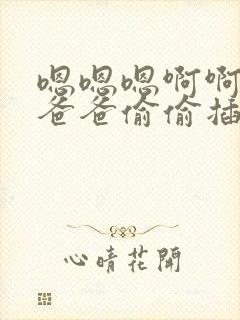 嗯嗯嗯啊啊
爸爸偷偷插
心晴花開